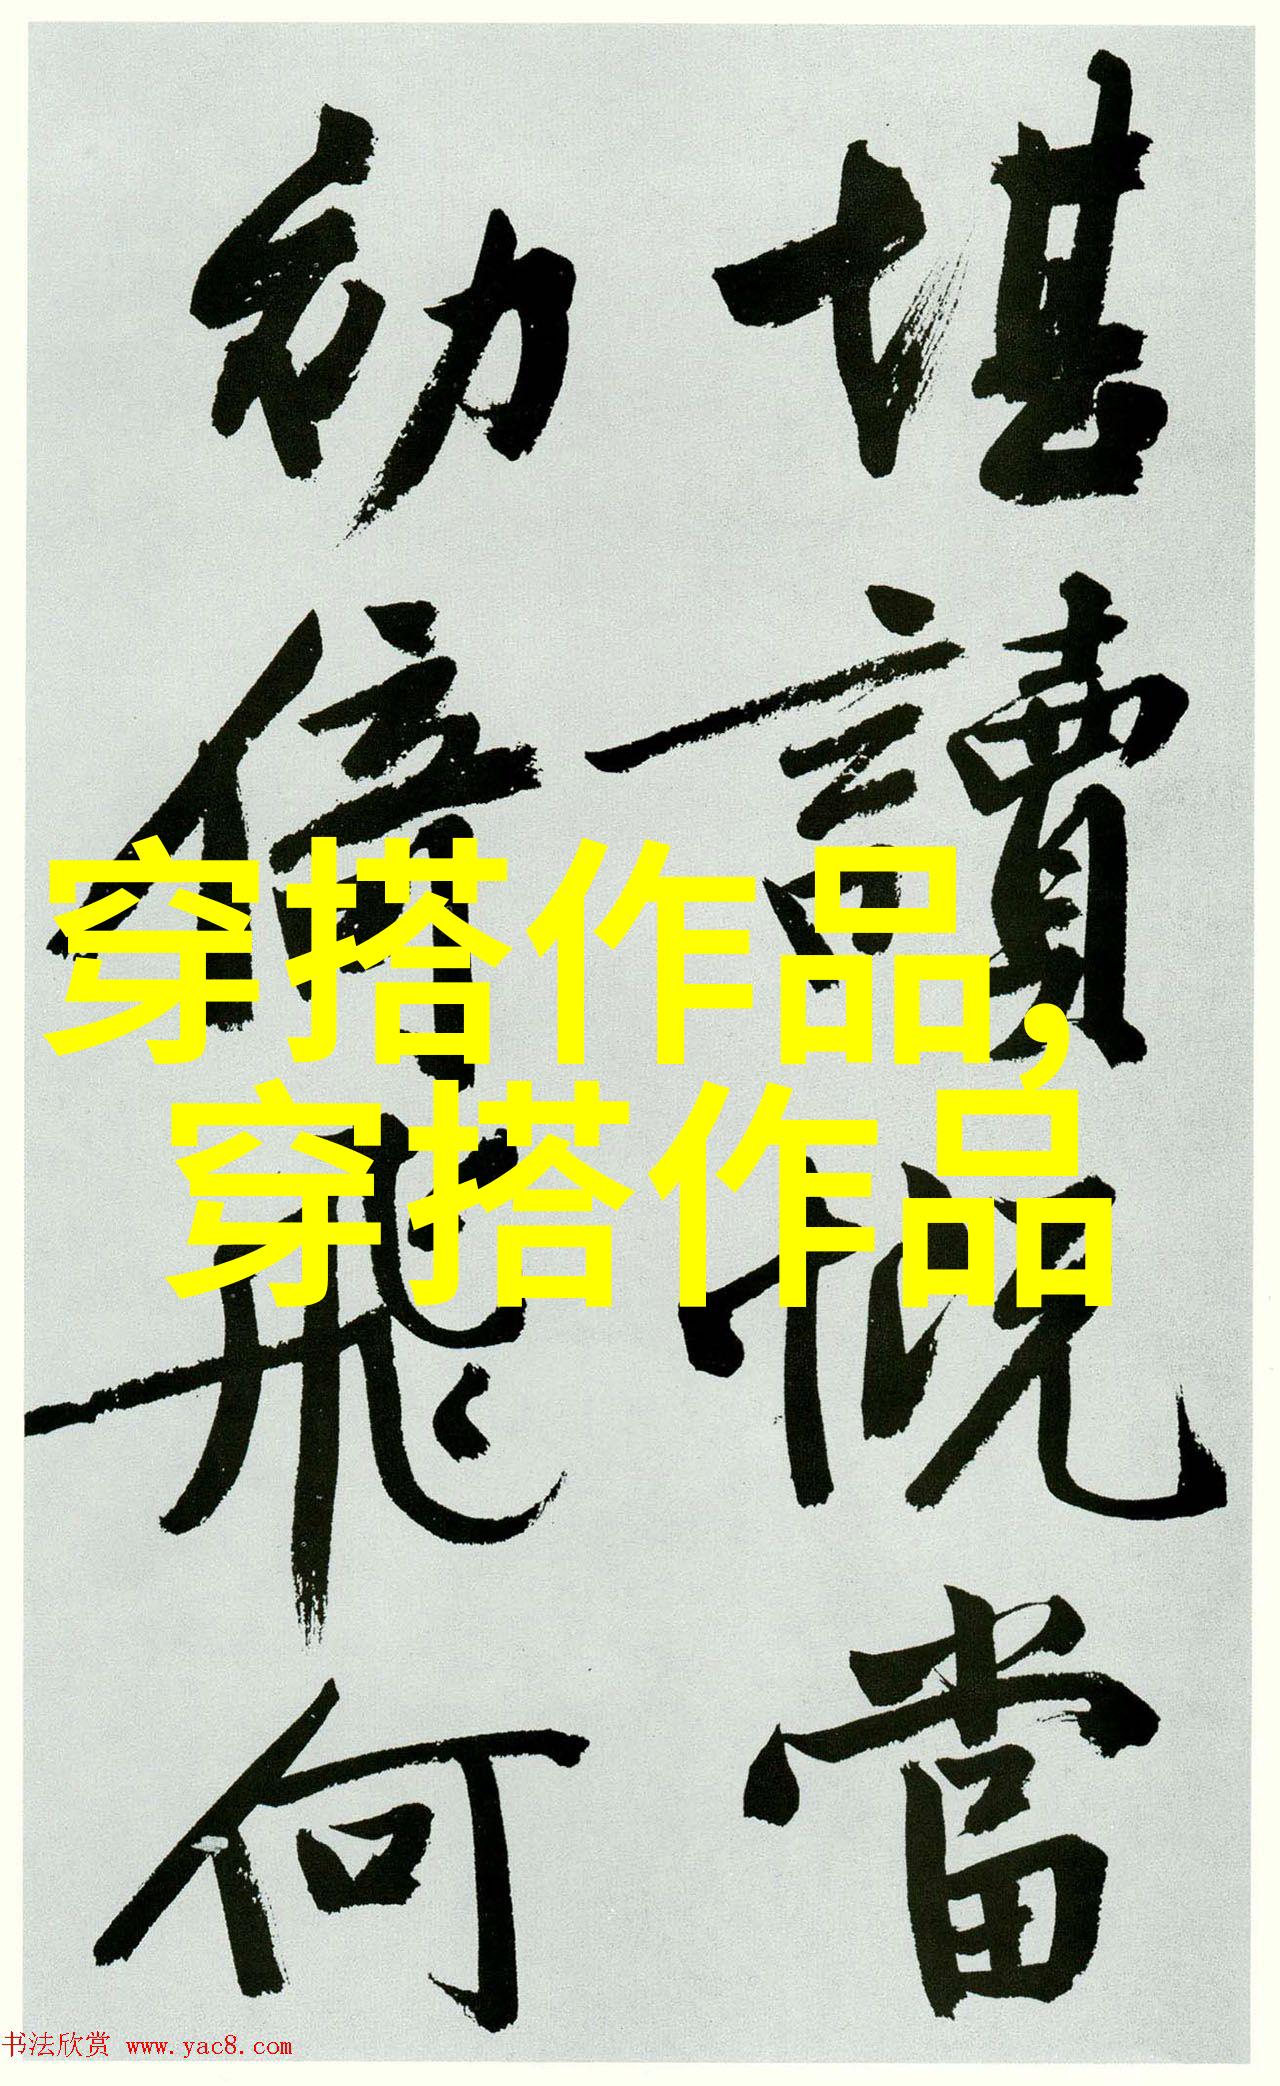 堪讀況當
幼倍飛何
穿搭作品,
穿搭作品
书法欣赏 www.yac8.com